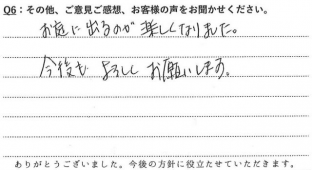 Q6：その他、ご意見ご感想、お客様の声をお聞かせください。
お庭に出るのが楽しくなりました。
今後も よろしく お願いします。
ありがとうございました。今後の方針に役立たせていただきます。